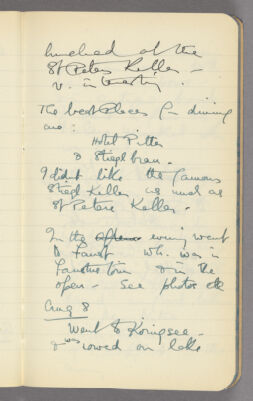 lunched at the
St Peters Keller –
v. interesting.
The best places for dining
are:
Hotel Pitter
& Stiegl brau.
I didnt like the famous
Stiegl Keller as much as
St Peters Keller.
In the evening went
to Faust wh. was in
& in the
open – See photos etc
Aug 8
Went to Königsee –
& was rowed on lake